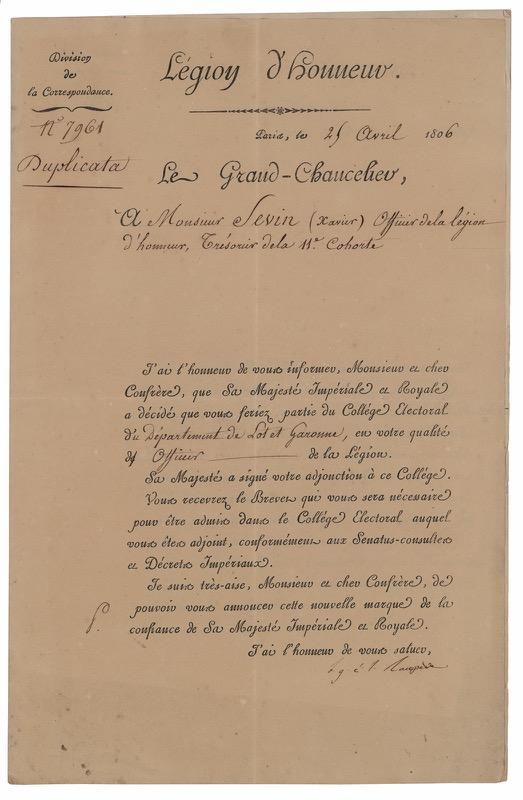 Division
de
la Correspondance.
N° 7961
Duplicata
Légion d'honneur.
Paris, le 25 Avril 1806
Le Grand-Chancelier,
A Monsieur Sevin (Xavier) Officier de la légion
d'honneur, Trésorier de la 11e Cohorte
J'ai l'honneur de vous informer, Monsieur et cher
Confrère, que Sa Majesté Impériale et Royale
a décidé que vous feriez partie du Collége Electoral
du Département de Lot et Garonne, en votre qualité
d' Officier de la Légion.
Sa Majesté a signé votre adjonction à ce Collége.
Vous recevrez le Brevet qui vous sera nécessaire
pour être admis dans le Collége Electoral auquel
vous êtes adjoint, conformément aux Senatus-consultes
et Décrets Impériaux.
Je suis très-aise, Monsieur et cher Confrère, de
pouvoir vous annoncer cette nouvelle marque de la
confiance de Sa Majesté Impériale et Royale.
J'ai l'honneur de vous saluer,